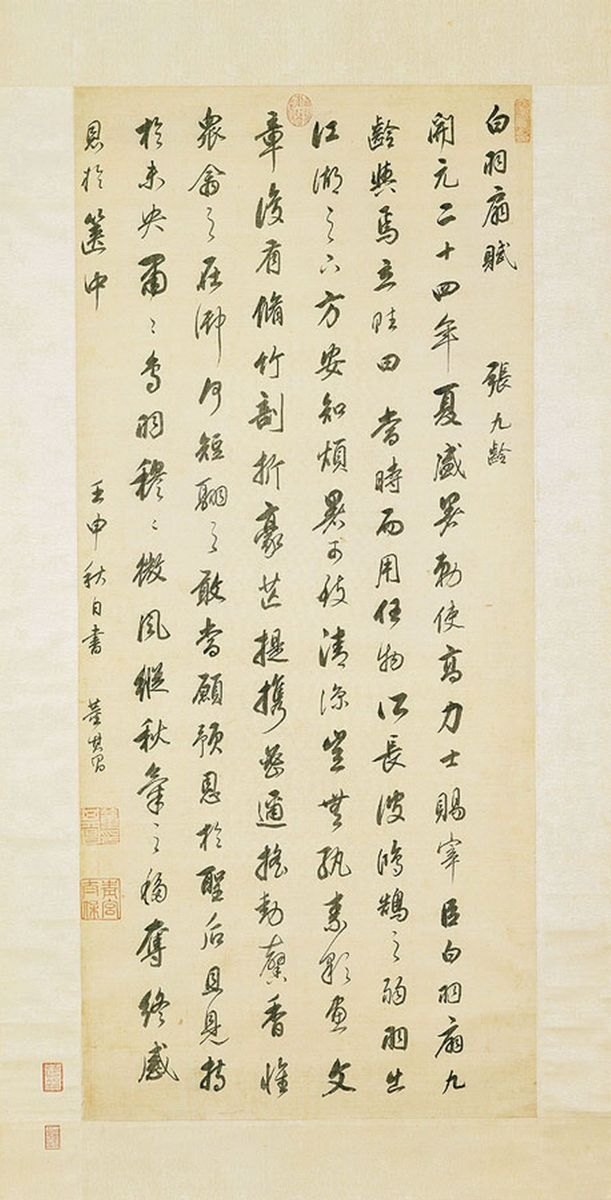 白羽扇賦 張九齡
開元二十四年夏盛暑勅使高力士賜宰臣白羽扇九
齡與焉立賦曰 當時而用任物所長彼鴻鵠之弱羽出
江湖之下方安知煩暑可致清涼豈無紈素彩畫文
章復有脩竹剖析豪芒提攜密邇搖動馨香惟
眾翕之在御何短翮之敢當願預恩於聖后且見持
於未央肅〻鳥羽穆〻微風縱秋氣之移奪終感
恩於篋中 壬申秋日書 董其昌
青宮太保